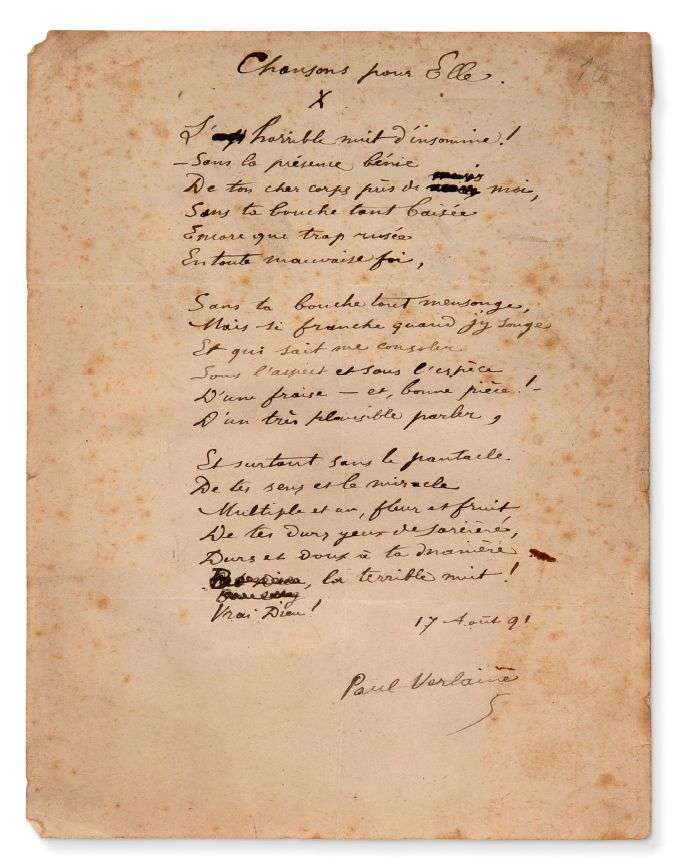 Chansons pour Elle.
X
L' horrible nuit d'insomnie!
– Sans la présence bénie
De ton cher corps près de moi,
Sans ta bouche tant baisée
Encore que trop rusée
En toute mauvaise foi,
Sans ta bouche tout mensonge,
Mais si franche quand j'y songe
Et qui sait me consoler
Sous l'aspect et sous l'espèce
D'une fraise — et, bonne pièce! –
D'un très plausible parler,
Et surtout sans le pantacle
De tes sens et le miracle
Multiple et un, fleur et fruit
De tes durs yeux de sorcière,
Durs et doux à ta manière
, la terrible nuit!
Vrai Dieu!
17 Août 91
Paul Verlaine